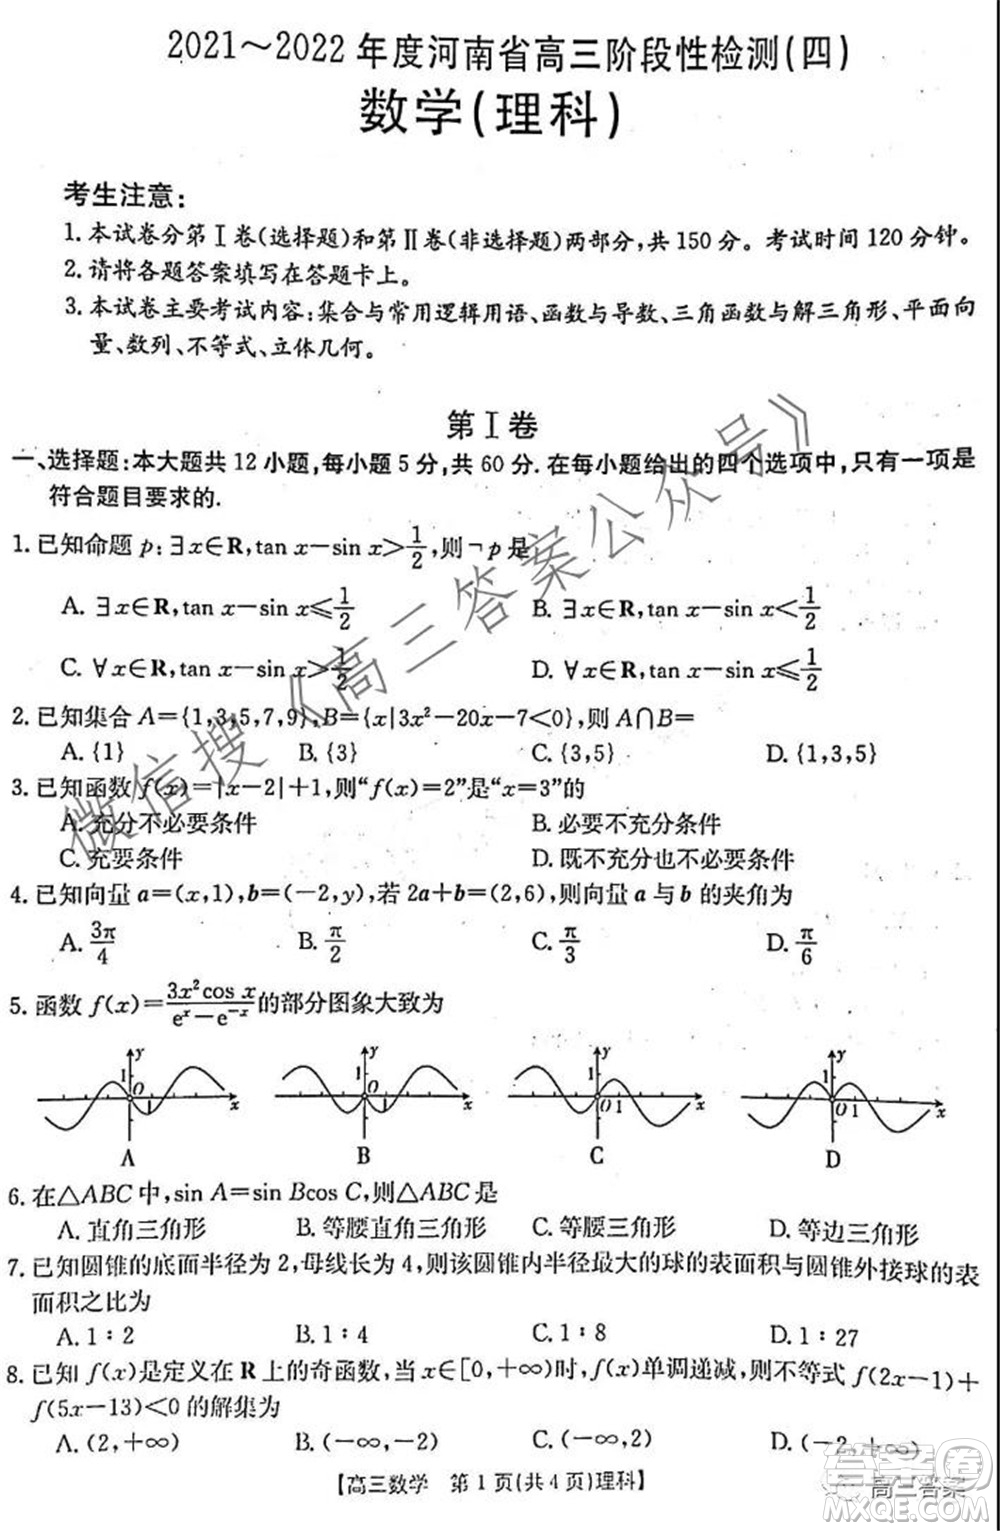 2021～2022年度河南省高三阶段性检测(四)
数学(理科)
考生注意:
1.本试卷分第Ⅰ卷(选择题)和第Ⅱ卷(非选择题)两部分,共150分。考试时间120分钟。
2.请将各题答案填写在答题卡上。
3.本试卷主要考试内容:集合与常用逻辑用语、函数与导数、三角函数与解三角形、平面向
量、数列、不等式、立体几何。
第Ⅰ卷
一、选择题:本大题共12小题,每小题5分,共60分.在每小题给出的四个选项中,只有一项是
符合题目要求的.
1.已知命题 p:∃x∈R,tan x−sin x>1/2,则¬p是
A.∃x∈R,tan x−sin x≤1/2 B.∃x∈R,tan x−sin x<1/2
C.∀x∈R,tan x−sin x>1/2 D.∀x∈R,tan x−sin x≤1/2
2.已知集合 A={1,3,5,7,9},B={x|3x²−20x−7<0},则 A∩B=
A.{1} B.{3} C.{3,5} D.{1,3,5}
3.已知函数 f(x)=|x−2|+1,则“f(x)=2”是“x=3”的
A.充分不必要条件 B.必要不充分条件
C.充要条件 D.既不充分也不必要条件
4.已知向量 a=(x,1),b=(−2,y),若 2a+b=(2,6),则向量 a 与 b 的夹角为
A.3π/4 B.π/2 C.π/3 D.π/6
5.函数 f(x)=3x²cos x/(eˣ−e⁻ˣ)的部分图象大致为
y 1 O 1 x y 1 O 1 x y 1 O 1 x y 1 O 1 x
A B C D
6.在△ABC中,sin A=sin Bcos C,则△ABC是
A.直角三角形 B.等腰直角三角形 C.等腰三角形 D.等边三角形
7.已知圆锥的底面半径为2,母线长为4,则该圆锥内半径最大的球的表面积与圆锥外接球的表
面积之比为
A.1∶2 B.1∶4 C.1∶8 D.1∶27
8.已知 f(x)是定义在 R 上的奇函数,当 x∈[0,+∞)时,f(x)单调递减,则不等式 f(2x−1)+
f(5x−13)<0 的解集为
A.(2,+∞) B.(−∞,−2) C.(−∞,2) D.(−2,+∞)
【高三数学 第1页(共4页)理科】
微信搜《高三答案公众号》
高三答案
答案圈
MXQE.COM